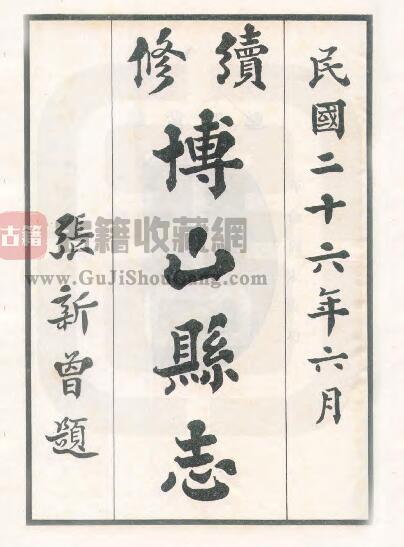 民國二十六年六月
續修
博山縣志
張新曾題
古籍
古籍收藏網
www.GuJiShouCang.com